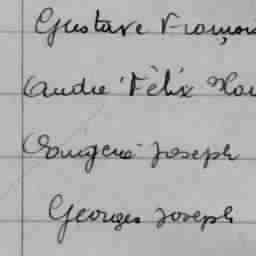 Gustave François
André Félix
Joseph
Georges Joseph